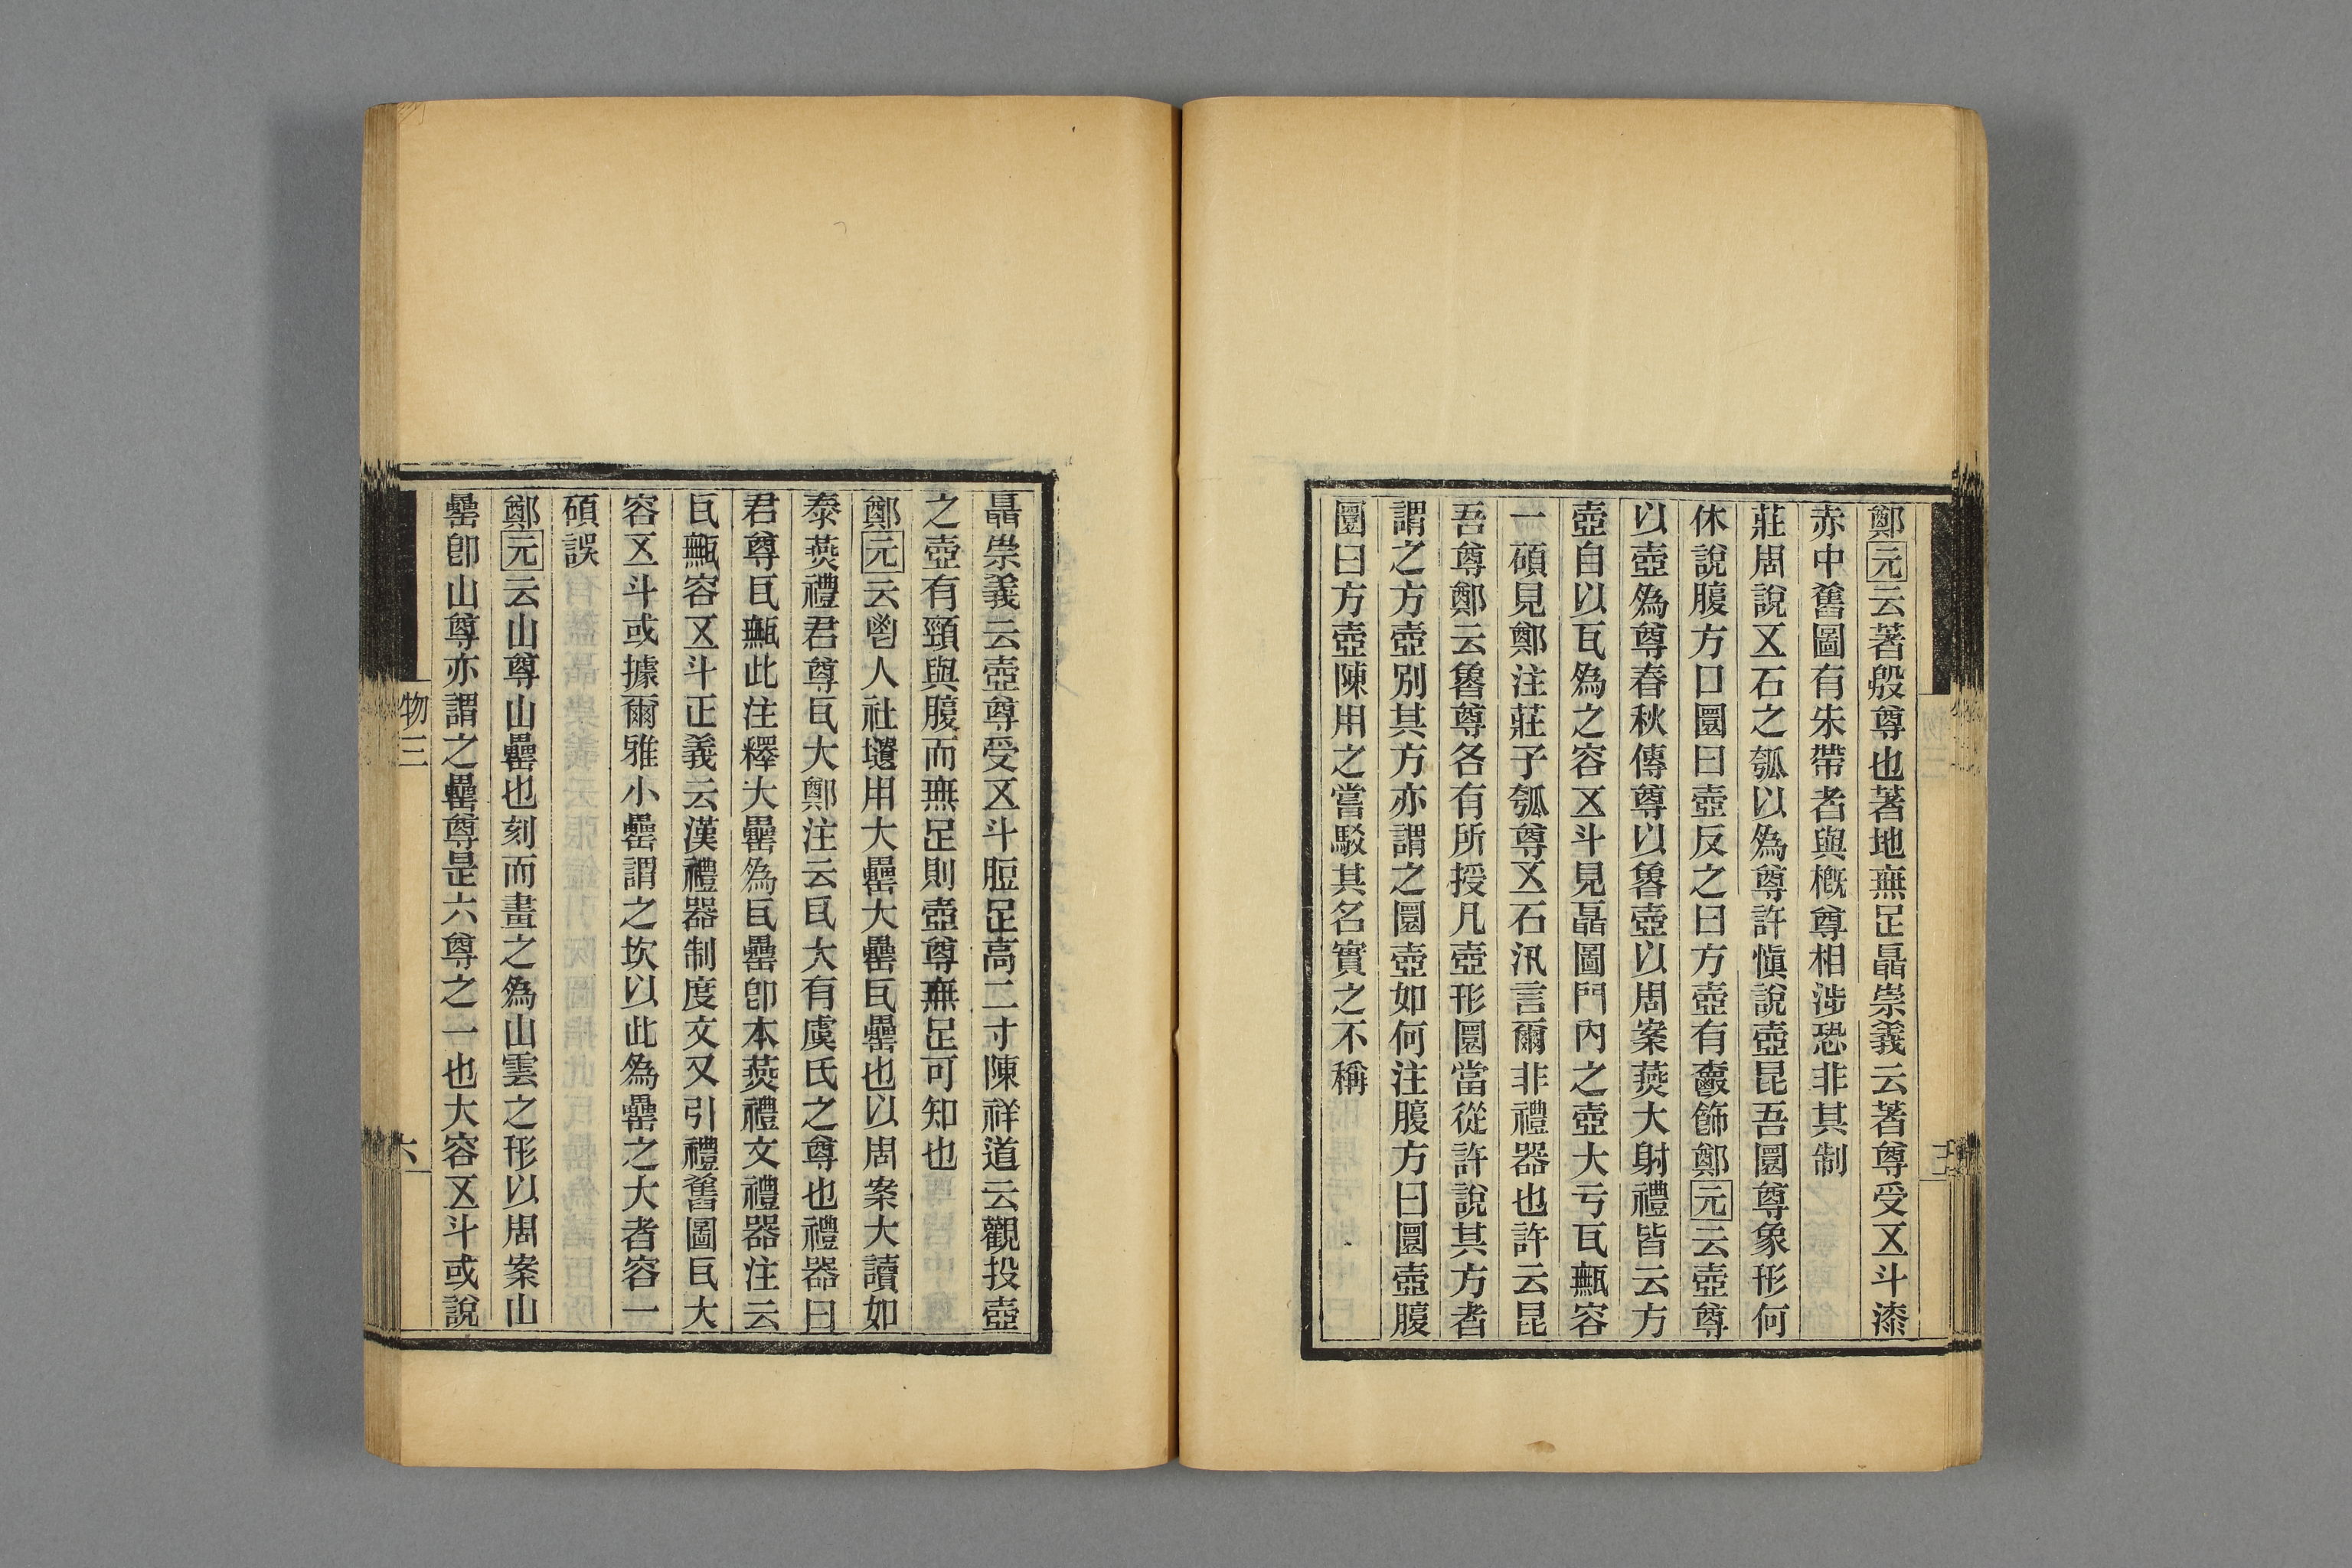 鄭元云著殷尊也著地無足聶崇義云著尊受五斗漆
赤中舊圖有朱帶者與槪尊相涉恐非其制
莊周說五石之瓠以爲尊許愼說壺昆吾圜尊象形何
休說腹方口圜曰壺反之曰方壺有爵飾鄭元云壺尊
以壺爲尊春秋傳尊以魯壺以周案燕大射禮皆云方
壺自以瓦爲之容五斗見聶圖門內之壺大亏瓦甒容
一碩見鄭注莊子瓠尊五石汎言爾非禮器也許云昆
吾尊鄭云魯尊各有所授凡壺形圜當從許說其方者
謂之方壺別其方亦謂之圜壺如何注腹方曰圜壺腹
圜曰方壺陳用之嘗駁其名實之不稱
聶崇義云壺尊受五斗脰足高二寸陳祥道云觀投壺
之壺有頸與腹而無足則壺尊無足可知也
鄭元云鬯人社壝用大罍大罍瓦罍也以周案大讀如
泰燕禮君尊瓦大鄭注云瓦大有虞氏之尊也禮器曰
君尊瓦甒此注釋大罍爲瓦罍卽本燕禮文禮器注云
瓦甒容五斗正義云漢禮器制度文又引禮舊圖瓦大
容五斗或據爾雅小罍謂之坎以此爲罍之大者容一
碩誤
鄭元云山尊山罍也刻而畫之爲山雲之形以周案山
罍卽山尊亦謂之罍尊是六尊之一也大容五斗或說
物三
六